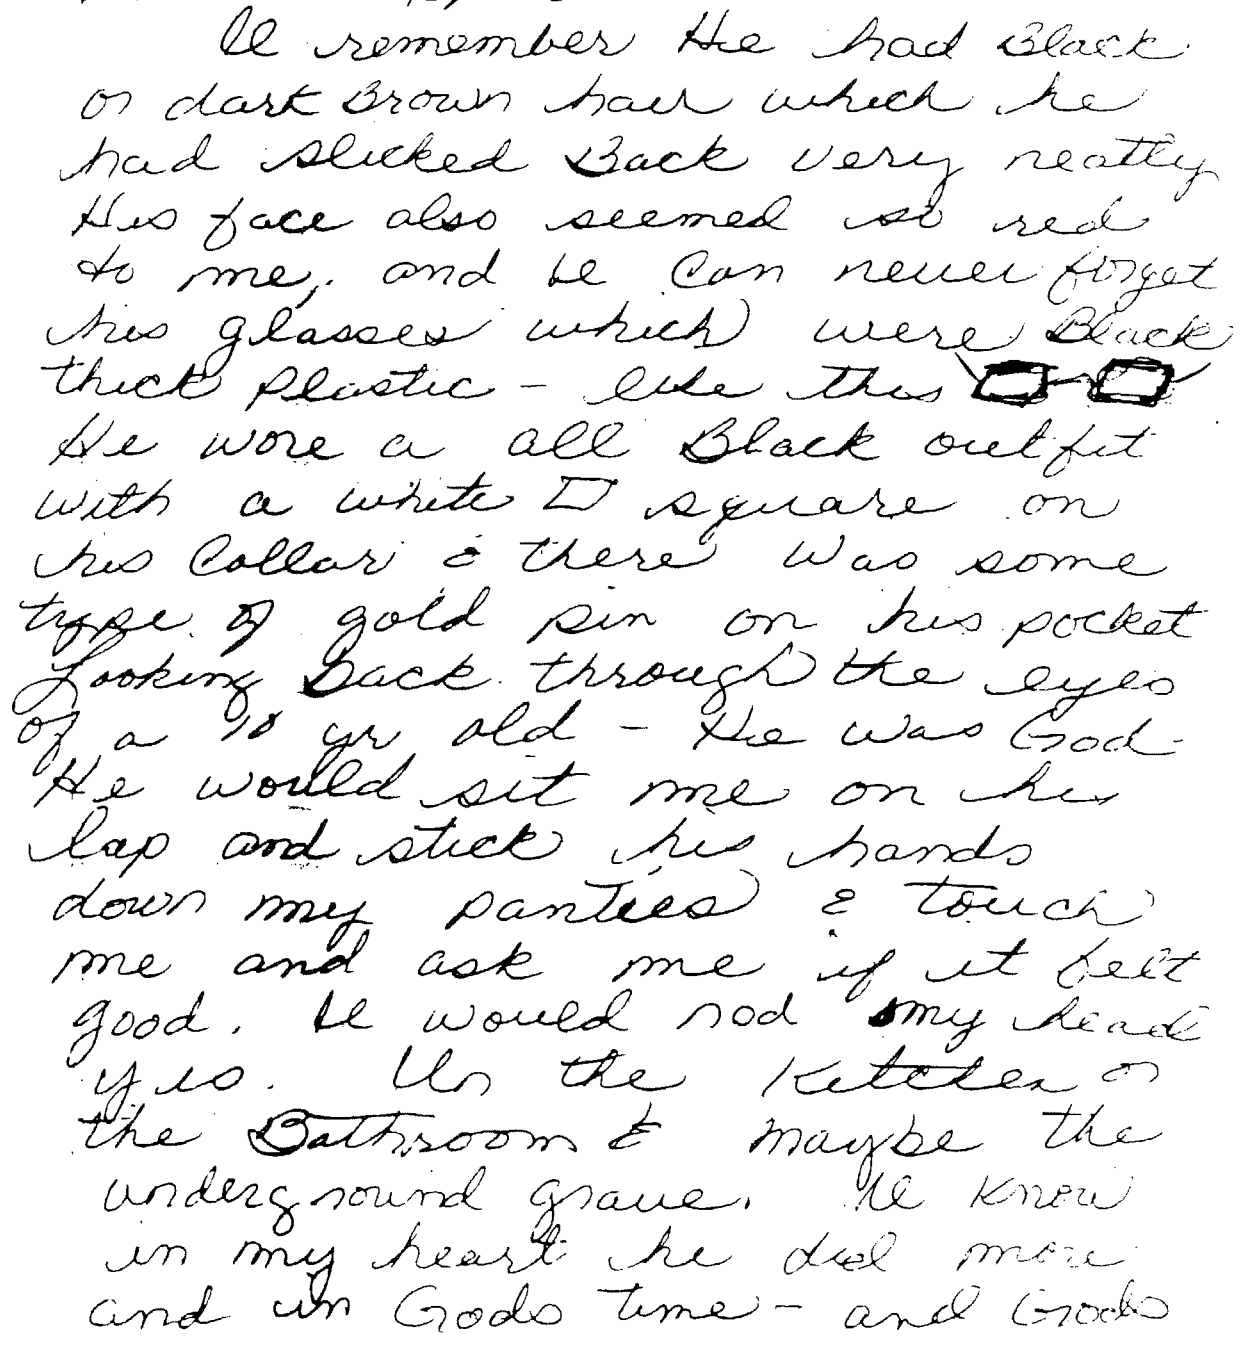 I remember He had Black
or dark Brown hair which he
had slicked Back very neatly
His face also seemed so red
to me, and I Can never forget
his glasses which were Black
thick Plastic - like this
He wore a all Black outfit
with a white square on
his Collar & there was some
type of gold pin on his pocket
Looking back through the eyes
of a 10 yr old - He was God
He would sit me on his
lap and stick his hands
down my panties & touch
me and ask me if it felt
good. I would nod my head
yes. In the Kitchen or
the Bathroom & maybe the
underground grave. I know
in my heart he did more
and in Gods time - and Gods